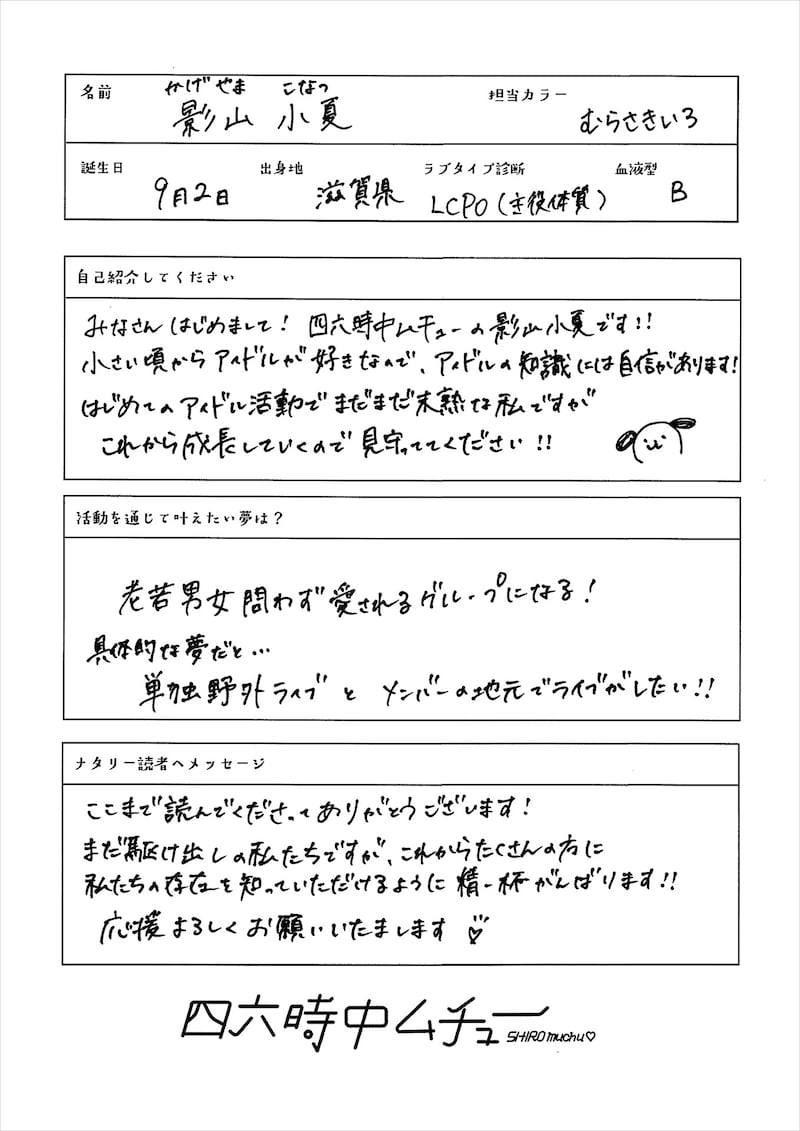 名前
かげやま こなつ
影山 小夏
担当カラー
むらさきいろ
誕生日
9月2日
出身地
滋賀県
ラブタイプ診断
LCPO(主役体質)
血液型
B
自己紹介してください
みなさんはじめまして! 四六時中ムチューの影山小夏です!!
小さい頃からアイドルが好きなので、アイドルの知識には自信があります!
はじめてのアイドル活動でまだまだ未熟な私ですが
これから成長していくので見守っててください!!
活動を通じて叶えたい夢は?
老若男女問わず愛されるグループになる!
具体的な夢だと…
単独野外ライブと メンバーの地元でライブがしたい!!
ナタリー読者へメッセージ
ここまで読んでくださってありがとうございます!
まだ駆け出しの私たちですが、これからたくさんの方に
私たちの存在を知っていただけるように精一杯がんばります!!
応援よろしくお願いいたまします♡
四六時中ムチュー SHIRO muchu♡